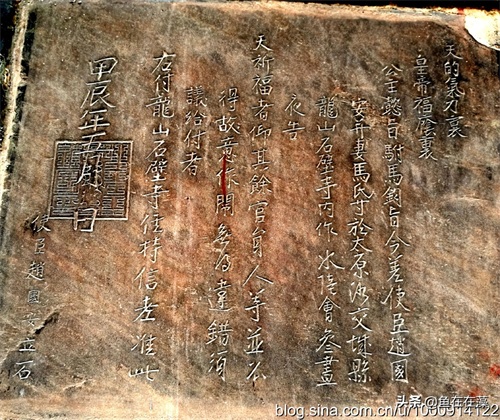 天的氣力裏
皇帝福廕裏
公主懿旨駙馬鈞旨今差使臣趙國
安并妻馬氏等於太原府交城縣
龍山石壁寺內作水陸會叁晝
夜告
天祈福者仰其餘官員人等並不
得故意違錯須
議給付者
右付龍山石壁寺住持信老准此
甲辰年五月日
使臣趙國安立石
头条 @鱼在在藻
blog.sina.com.cn/u/1090914122